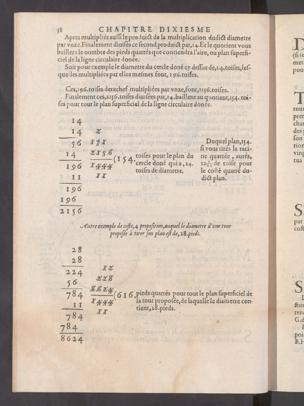 58 CHAPITRE DIXIESME
Apres multipliés aussi le produict de la multiplication dudict diametre
par unze. Finalement divisés ce second produict par, 14. Et le quotient vous
baillera le nombre des pieds quarrés que contiendra l'aire, ou plan superfi-
ciel de la ligne circulaire donée.
Soit pour exemple le diametre du cercle doné cy dessus de, 14. toises, les-
que lles multipliées par elles mesmes sont, 196. toises.
Ces, 196. toises derechef multipliées par unze, sont, 2156. toises.
Finalement ces, 2156. toises divisées par, 14. baillent au quotient, 154. toi-
ses pour tout le plan superficial de la ligne circulaire donée.
14
14
56
14
196
11
196
196
2156
(154. toises pour le plan du
cercle doné qui a, 14.
toises de diametre.
Duquel plan, 154.
si vous tirés la raci-
ne quarrée, aurés,
de toise pour
le costé quarré du-
dict plan.
Autre exemple de ceste, 4 proposition, auquel le diametre d'une tour
proposée à tirer son plan est de, 28. pieds.
28
28
224
56
784
11
784
784
8624
(616. pieds quarrés pour tout le plan superficiel de
la tour proposée, de laquelle le diametre con-
tient, 28. pieds.